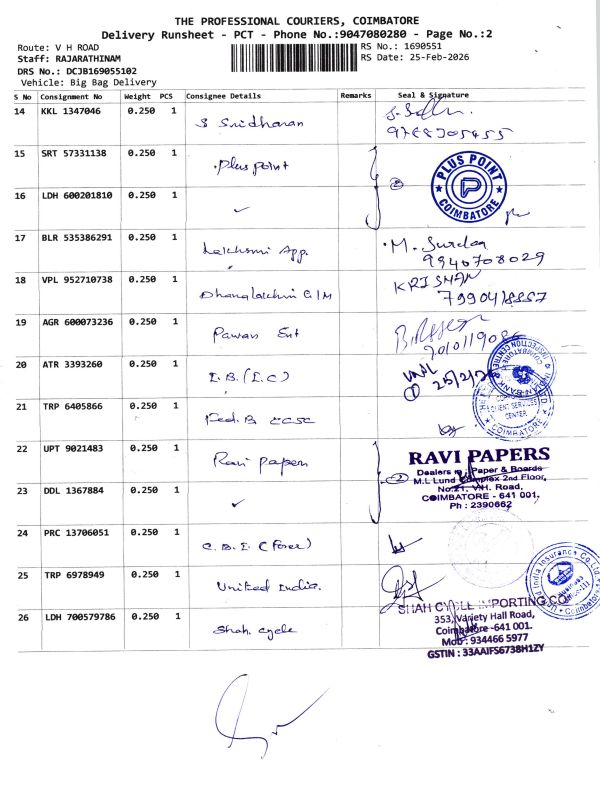 THE PROFESSIONAL COURIERS, COIMBATORE
Delivery Runsheet - PCT - Phone No.:9047080280 - Page No.:2
Route: V H ROAD
RS No.: 1690551
Staff: RAJARATHINAM
RS Date: 25-Feb-2026
DRS No.: DCJB169055102
Vehicle: Big Bag Delivery
S No Consignment No Weight PCS Consignee Details Remarks Seal & Signature
14 KKL 1347046 0.250 1 S Sridharan
15 SRT 57331138 0.250 1 Plus point ② PLUS POINT P COIMBATORE
16 LDH 600201810 0.250 1 ✓
17 BLR 535386291 0.250 1 Lakshmi App. M.
9940708029
18 VPL 952710738 0.250 1 Dhanalakshmi KRISHAN
19 AGR 600073236 0.250 1 Pawan Ent
20 ATR 3393260 0.250 1 I.B. (I.C) ① 25/2/26
INDIAN BANK CLIENT SERVICES CENTER COIMBATORE
21 TRP 6405866 0.250 1 Fed. B
22 UPT 9021483 0.250 1 Ravi papers ② RAVI PAPERS
Dealers in Paper & Boards
M.L Lund Complex 2nd Floor,
No.21, V.H. Road,
COIMBATORE - 641 001.
Ph : 2390662
23 DDL 1367884 0.250 1 ✓
24 PRC 13706051 0.250 1
25 TRP 6978949 0.250 1 United India. United India Insurance Co. Ltd. Coimbatore
26 LDH 700579786 0.250 1 Shah cycle SHAH CYCLE IMPORTING CO.
353, Variety Hall Road,
Coimbatore -641 001.
Mob : 934466 5977
GSTIN : 33AAIFS6738H1ZY